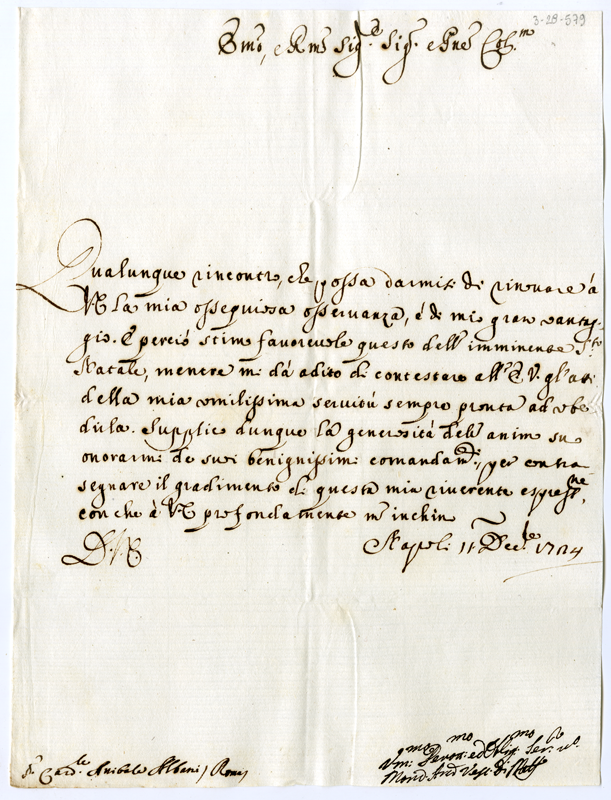 3-28-579
Emo, e Rmo Sigre Sigr. e Pne Colmo
Qualunque rincontro, che possa darmisi di rinovare à
VE la mia ossequiosa osservanza, é di mio gran vantag-
gio. E perciò stimo favorevole questo dell' imminente Sto
Natale, mentre mi dà adito di contestare all' E.V. gl' atti
della mia umilissima servitù sempre pronta ad ube
dirla. Supplico dunque la generosità dell' animo suo
onorarmi de suoi benignissimi comandamti, per contra-
segnare il gradimento di questa mia riverente espressne,
con che à VE profondamente m' inchino
D.V.E.
Napoli 11 Decbre 1724
Sr Cardle Anibale Albani / Roma
Vmo Devotmo ed Obligmo Serre